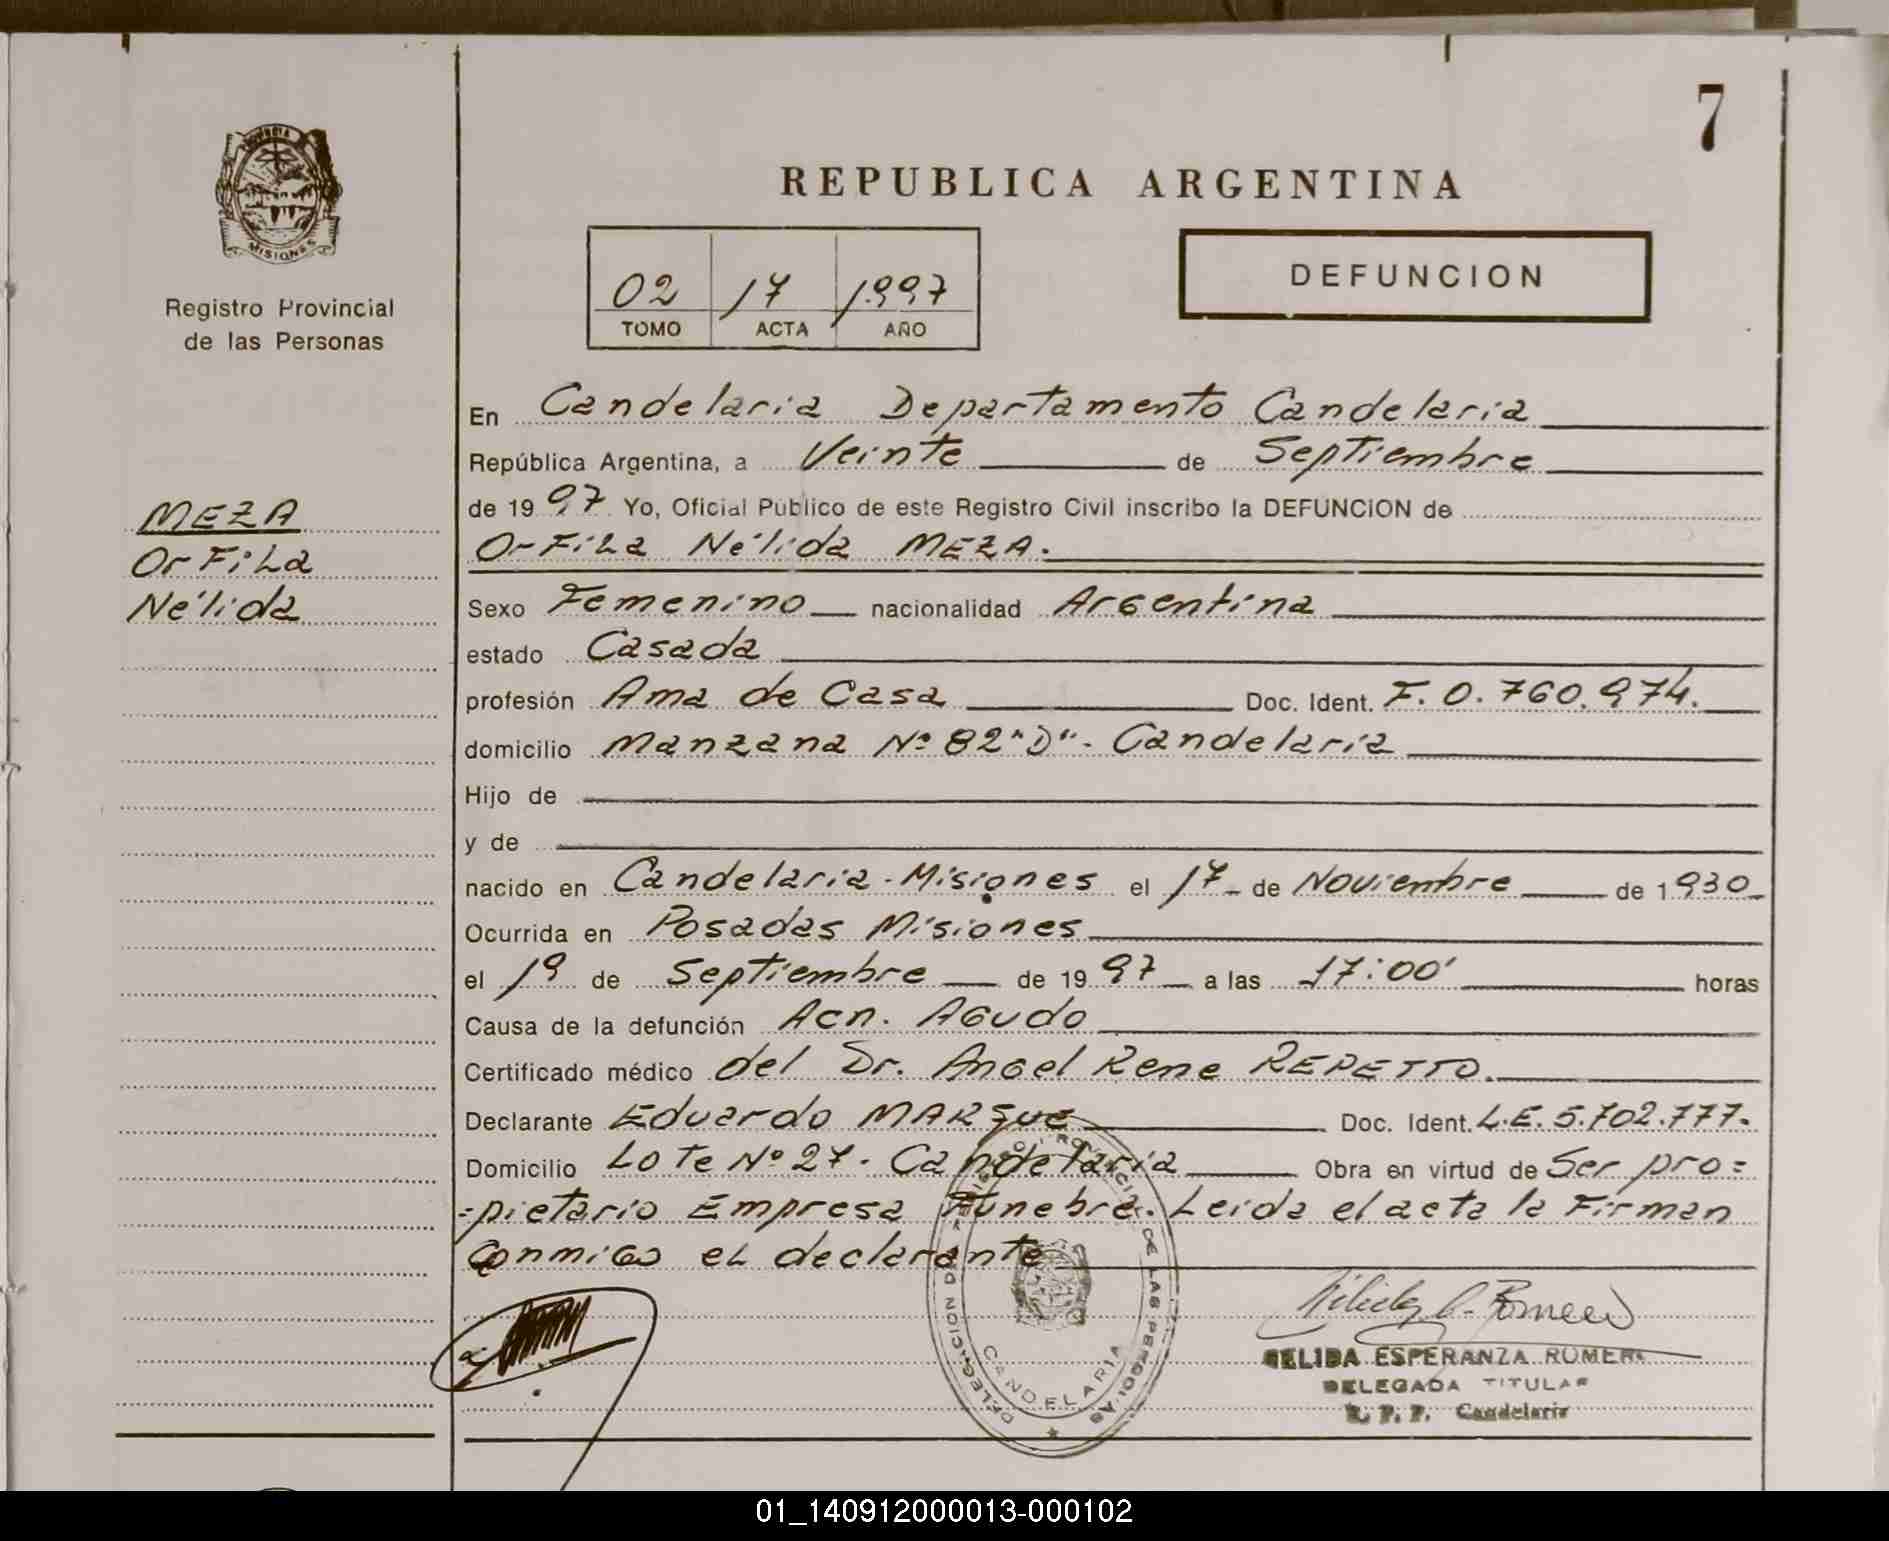 7
PROVINCIA
MISIONES
Registro Provincial
de las Personas
REPUBLICA ARGENTINA
02 17 1.997
TOMO ACTA AÑO
DEFUNCION
MEZA
OrFiLa
Nélida
En Candelaria Departamento Candelaria
República Argentina, a Veinte de Septiembre
de 19 97 Yo, Oficial Público de este Registro Civil inscribo la DEFUNCION de
OrFiLa Nélida MEZA.
Sexo Femenino nacionalidad Argentina
estado Casada
profesión Ama de Casa Doc. Ident. F. 0.760.974.
domicilio Manzana Nº 82 "D"- Candelaria
Hijo de
y de
nacido en Candelaria - Misiones el 17 de Noviembre de 1930
Ocurrida en Posadas Misiones
el 19 de Septiembre de 19 97 a las 17:00' horas
Causa de la defunción Acn. Agudo
Certificado médico del Dr. Angel Rene REPETTO.
Declarante Eduardo MARQUE Doc. Ident. L.E. 5.702.777.
Domicilio LoTe Nº 27. Candelaria Obra en virtud de Ser pro=
=pietario Empresa Funebre. Leida el acta la Firman
Conmigo eL declarante
REGISTRO PROVINCIAL DE LAS PERSONAS
DELEGACION
CANDELARIA
NELIDA ESPERANZA ROMERO
DELEGADA TITULAR
R. P. P. Candelaria
01_140912000013-000102